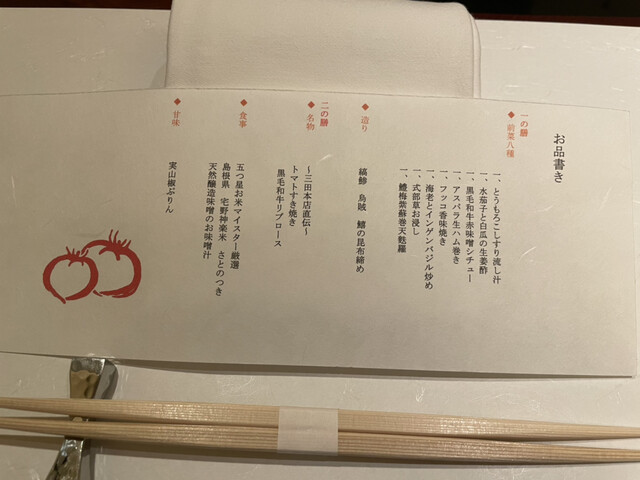 お品書き
一の膳
◆ 前菜八種
一、とうもろこしすり流し汁
一、水茄子と白瓜の生姜酢
一、黒毛和牛赤味噌シチュー
一、アスパラ生ハム巻き
一、フッコ香味焼き
一、海老とインゲンバジル炒め
一、式部草お浸し
一、鱧梅紫蘇巻天麩羅
◆ 造り
縞鯵 烏賊 鱚の昆布締め
二の膳
◆ 名物
～三田本店直伝～
トマトすき焼き
黒毛和牛リブロース
◆ 食事
五つ星お米マイスター厳選
島根県 宅野神楽米 さとのつき
天然醸造味噌のお味噌汁
◆ 甘味
実山椒ぷりん